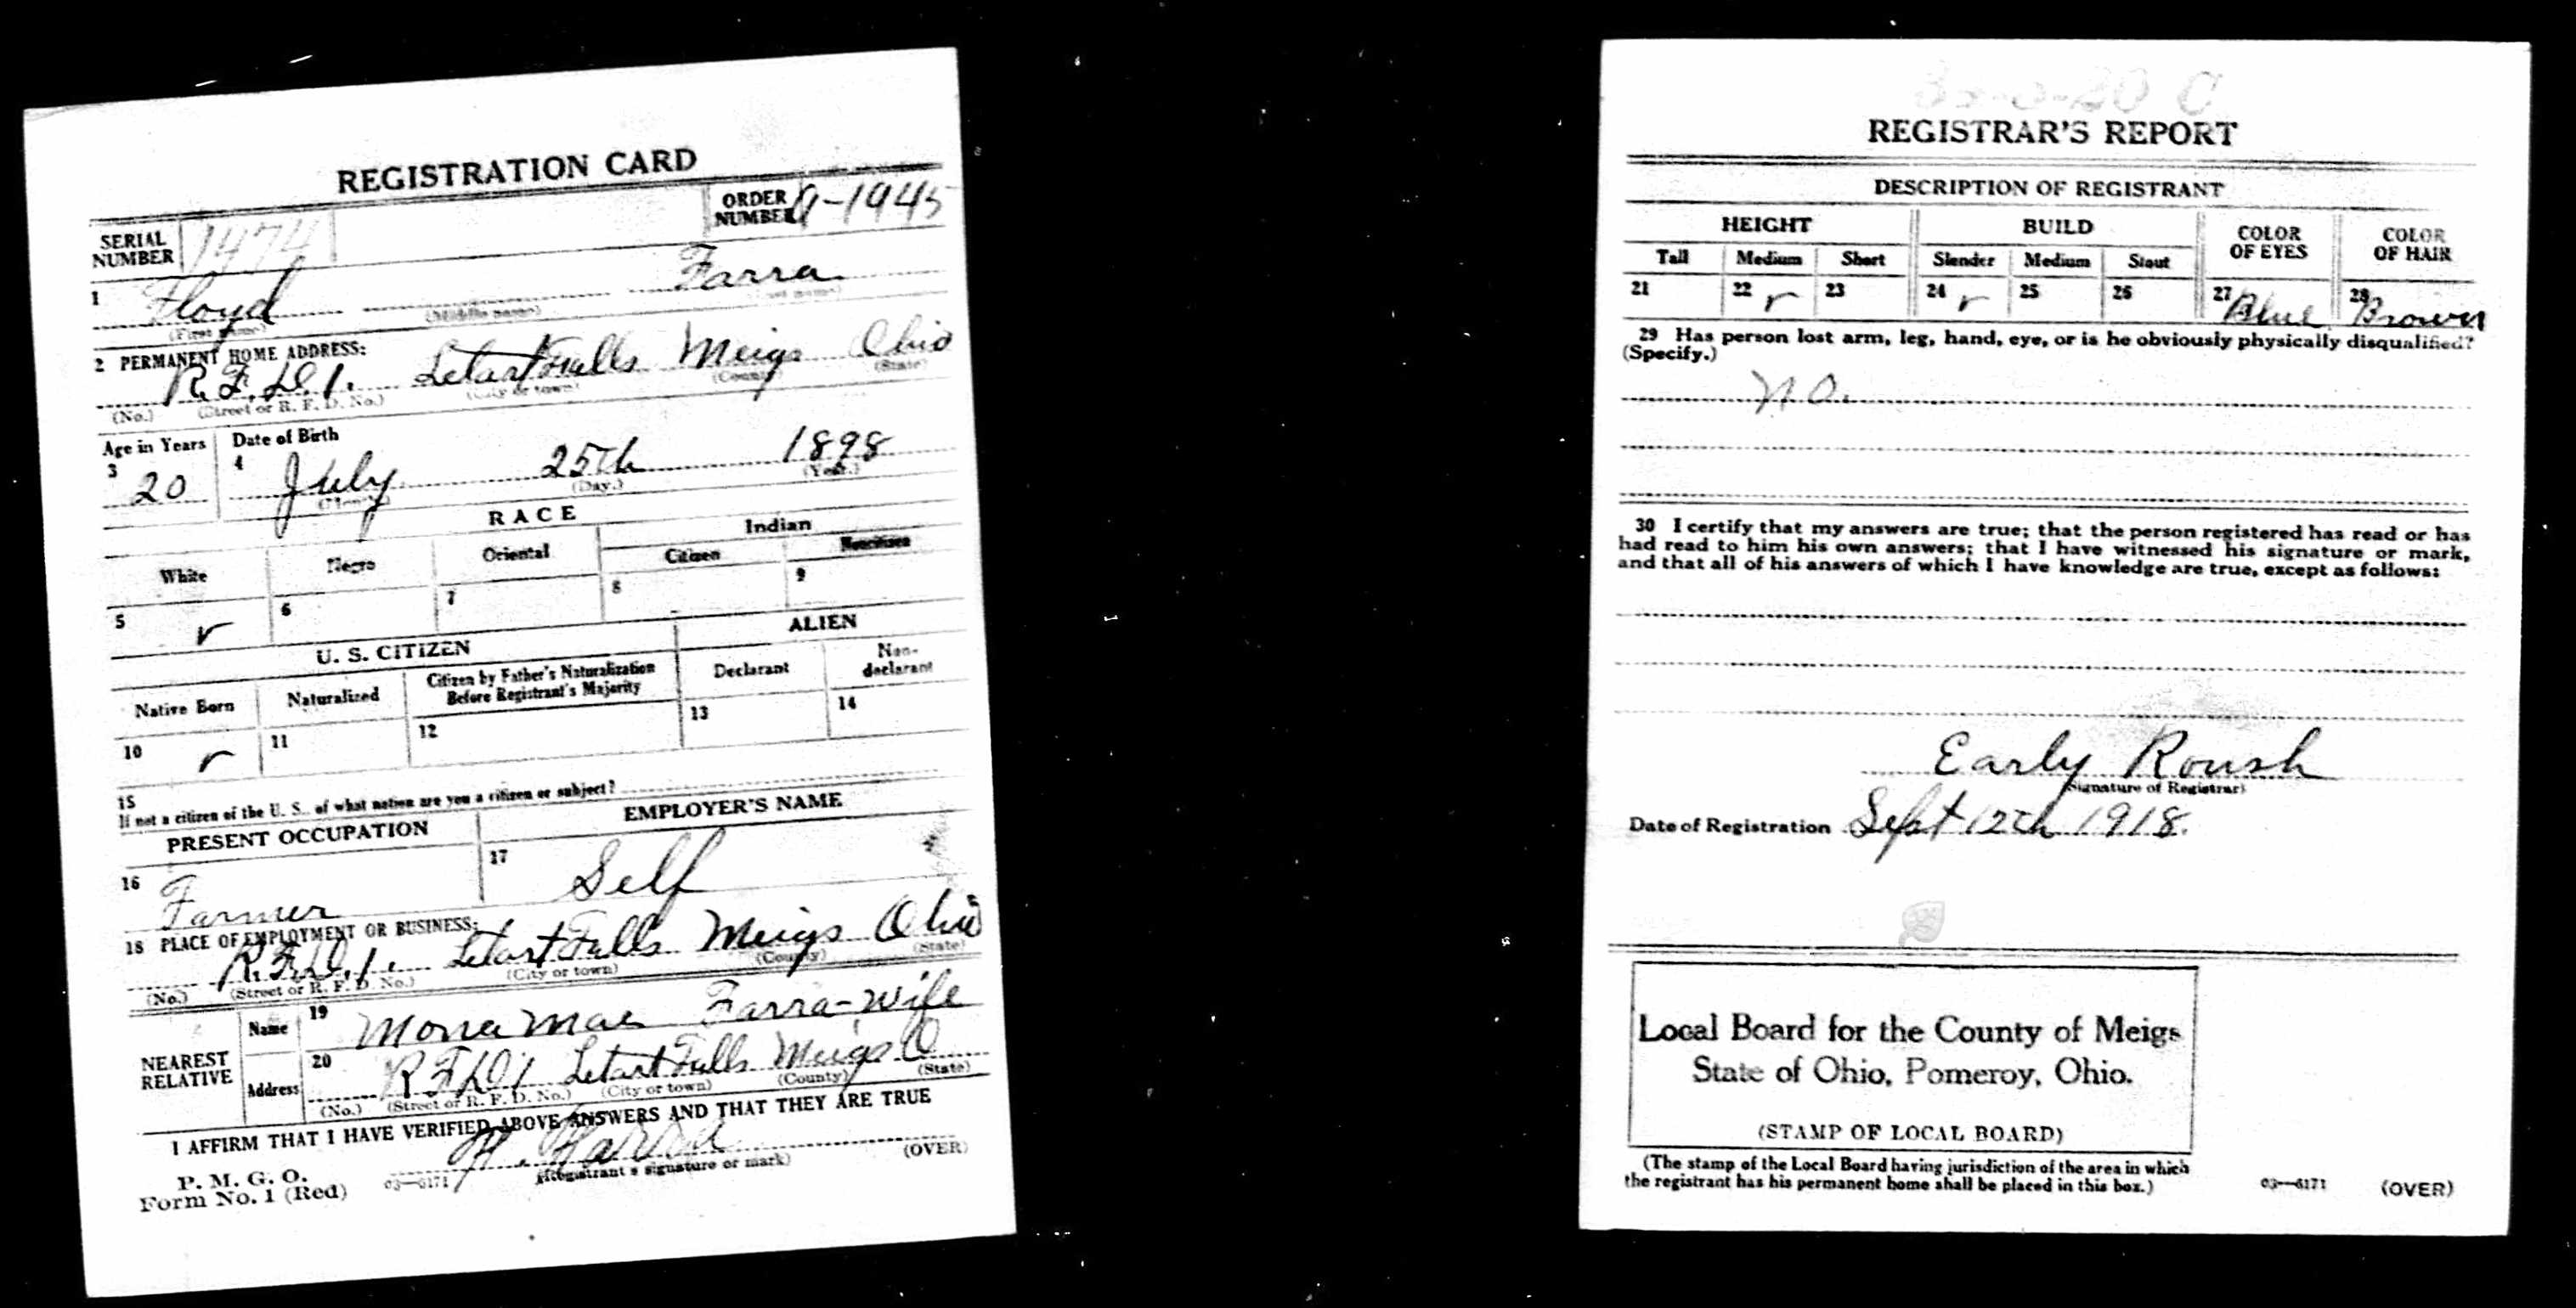 REGISTRATION CARD
SERIAL NUMBER 1474 ORDER NUMBER A-1945
1 Floyd Farra
(First name) (Middle name) (Last name)
2 PERMANENT HOME ADDRESS:
R.F.D.1. Letart Falls Meigs Ohio
(No.) (Street or R. F. D. No.) (City or town) (County) (State)
Age in Years Date of Birth
3 20 4 July 25th 1898
(Month.) (Day.) (Year.)
RACE
White Negro Oriental Indian
Citizen Noncitizen
5 ✓ 6 7 8 9
U. S. CITIZEN ALIEN
Native Born Naturalized Citizen by Father's Naturalization Before Registrant's Majority Declarant Non-declarant
10 ✓ 11 12 13 14
15 If not a citizen of the U. S., of what nation are you a citizen or subject?
PRESENT OCCUPATION EMPLOYER'S NAME
16 Farmer 17 Self
18 PLACE OF EMPLOYMENT OR BUSINESS:
R.F.D.1. Letart Falls Meigs Ohio
(No.) (Street or R. F. D. No.) (City or town) (County) (State)
NEAREST RELATIVE
Name 19 Mona Mae Farra-wife
Address 20 R.F.D.1 Letart Falls Meigs O
(No.) (Street or R. F. D. No.) (City or town) (County) (State)
I AFFIRM THAT I HAVE VERIFIED ABOVE ANSWERS AND THAT THEY ARE TRUE
P. M. G. O.
Form No. 1 (Red) 03—6171 Farra
(Registrant's signature or mark) (OVER)
REGISTRAR'S REPORT
DESCRIPTION OF REGISTRANT
HEIGHT BUILD COLOR OF EYES COLOR OF HAIR
Tall Medium Short Slender Medium Stout
21 22 ✓ 23 24 ✓ 25 26 27 Blue 28 Brown
29 Has person lost arm, leg, hand, eye, or is he obviously physically disqualified?
(Specify.)
No.
30 I certify that my answers are true; that the person registered has read or has
had read to him his own answers; that I have witnessed his signature or mark,
and that all of his answers of which I have knowledge are true, except as follows:
Early Roush
(Signature of Registrar)
Date of Registration Sept 12th 1918.
Local Board for the County of Meigs
State of Ohio, Pomeroy, Ohio.
(STAMP OF LOCAL BOARD)
(The stamp of the Local Board having jurisdiction of the area in which
the registrant has his permanent home shall be placed in this box.)
03—6171 (OVER)